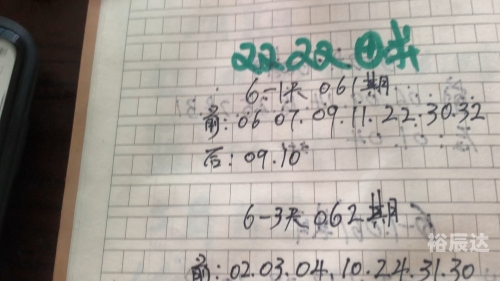 22.22
6-1天 061期
前:06 07.09.11.22.30.32
后:09.10
6-3天 062期
前:02.03.04.10.24.31.30
裕辰达